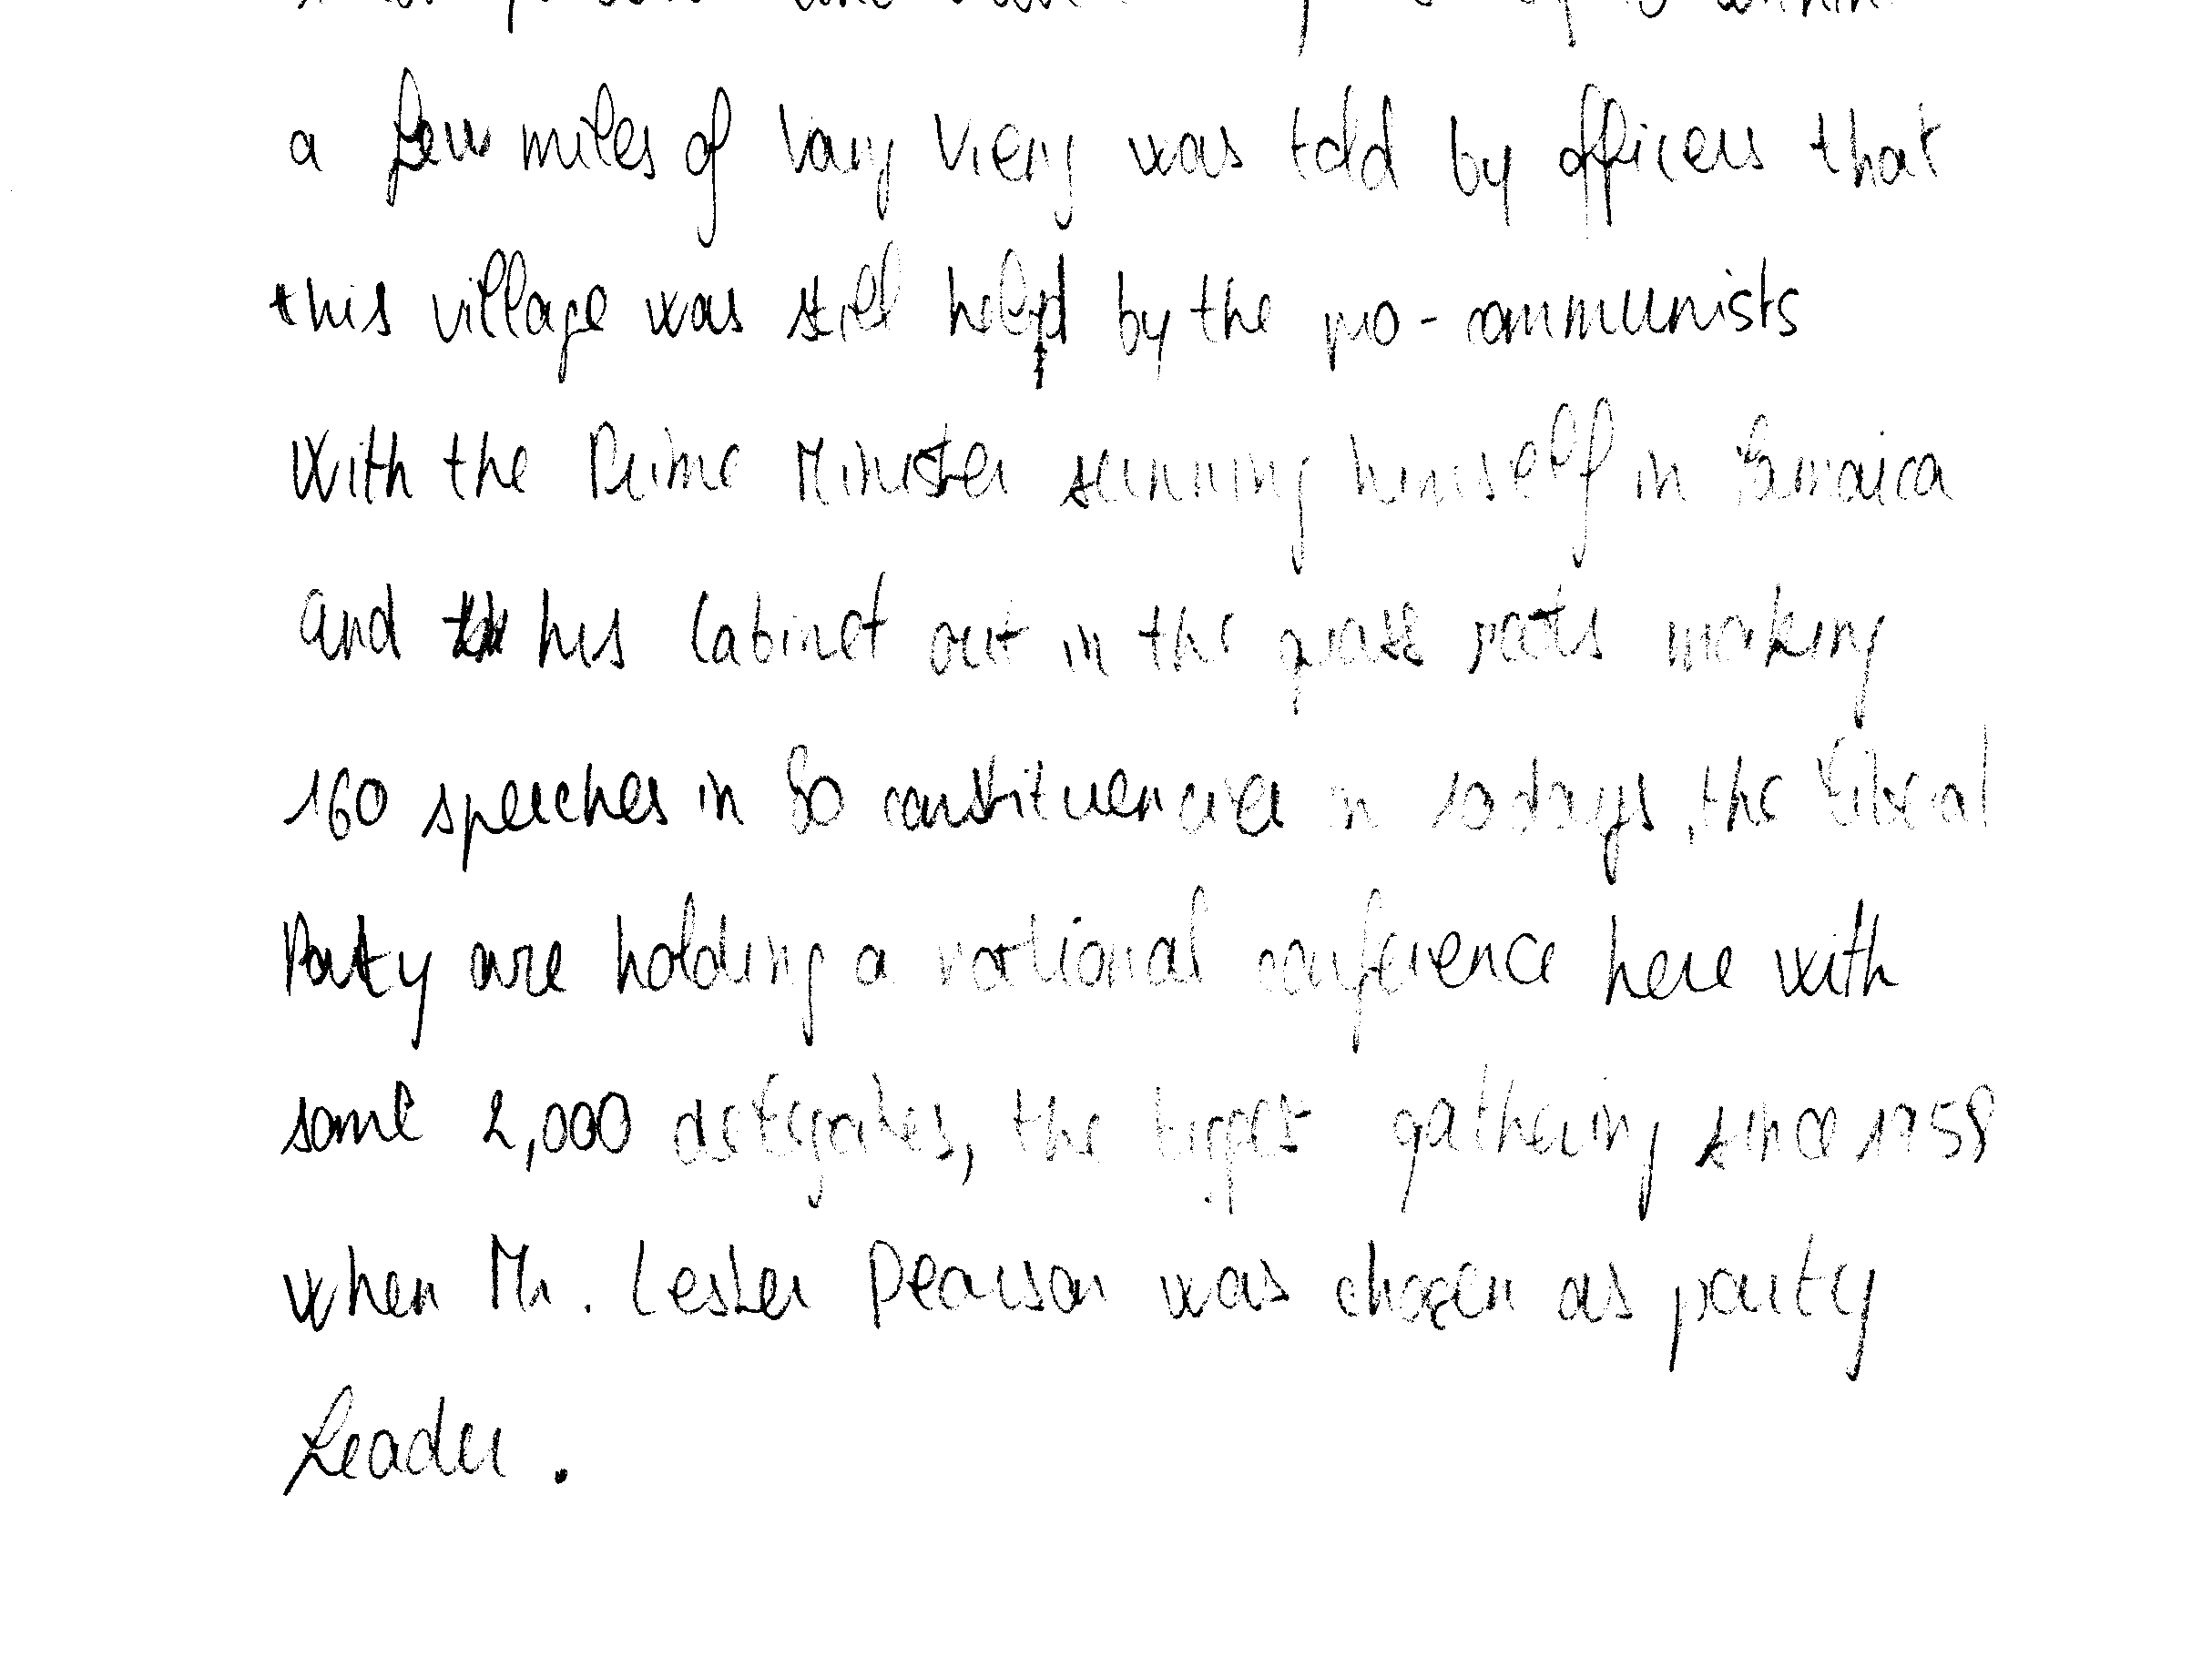 within
a few miles of Vang Vieng was told by officers that
this village was still held by the pro-communists
With the Prime Minister sunning himself in Jamaica
and his Cabinet out in the grass roots making
160 speeches in 80 constituencies in 10 days, the Liberal
Party are holding a national conference here with
some 2,000 delegates, the biggest gathering since 1958
when Mr. Lester Pearson was chosen as party
Leader.